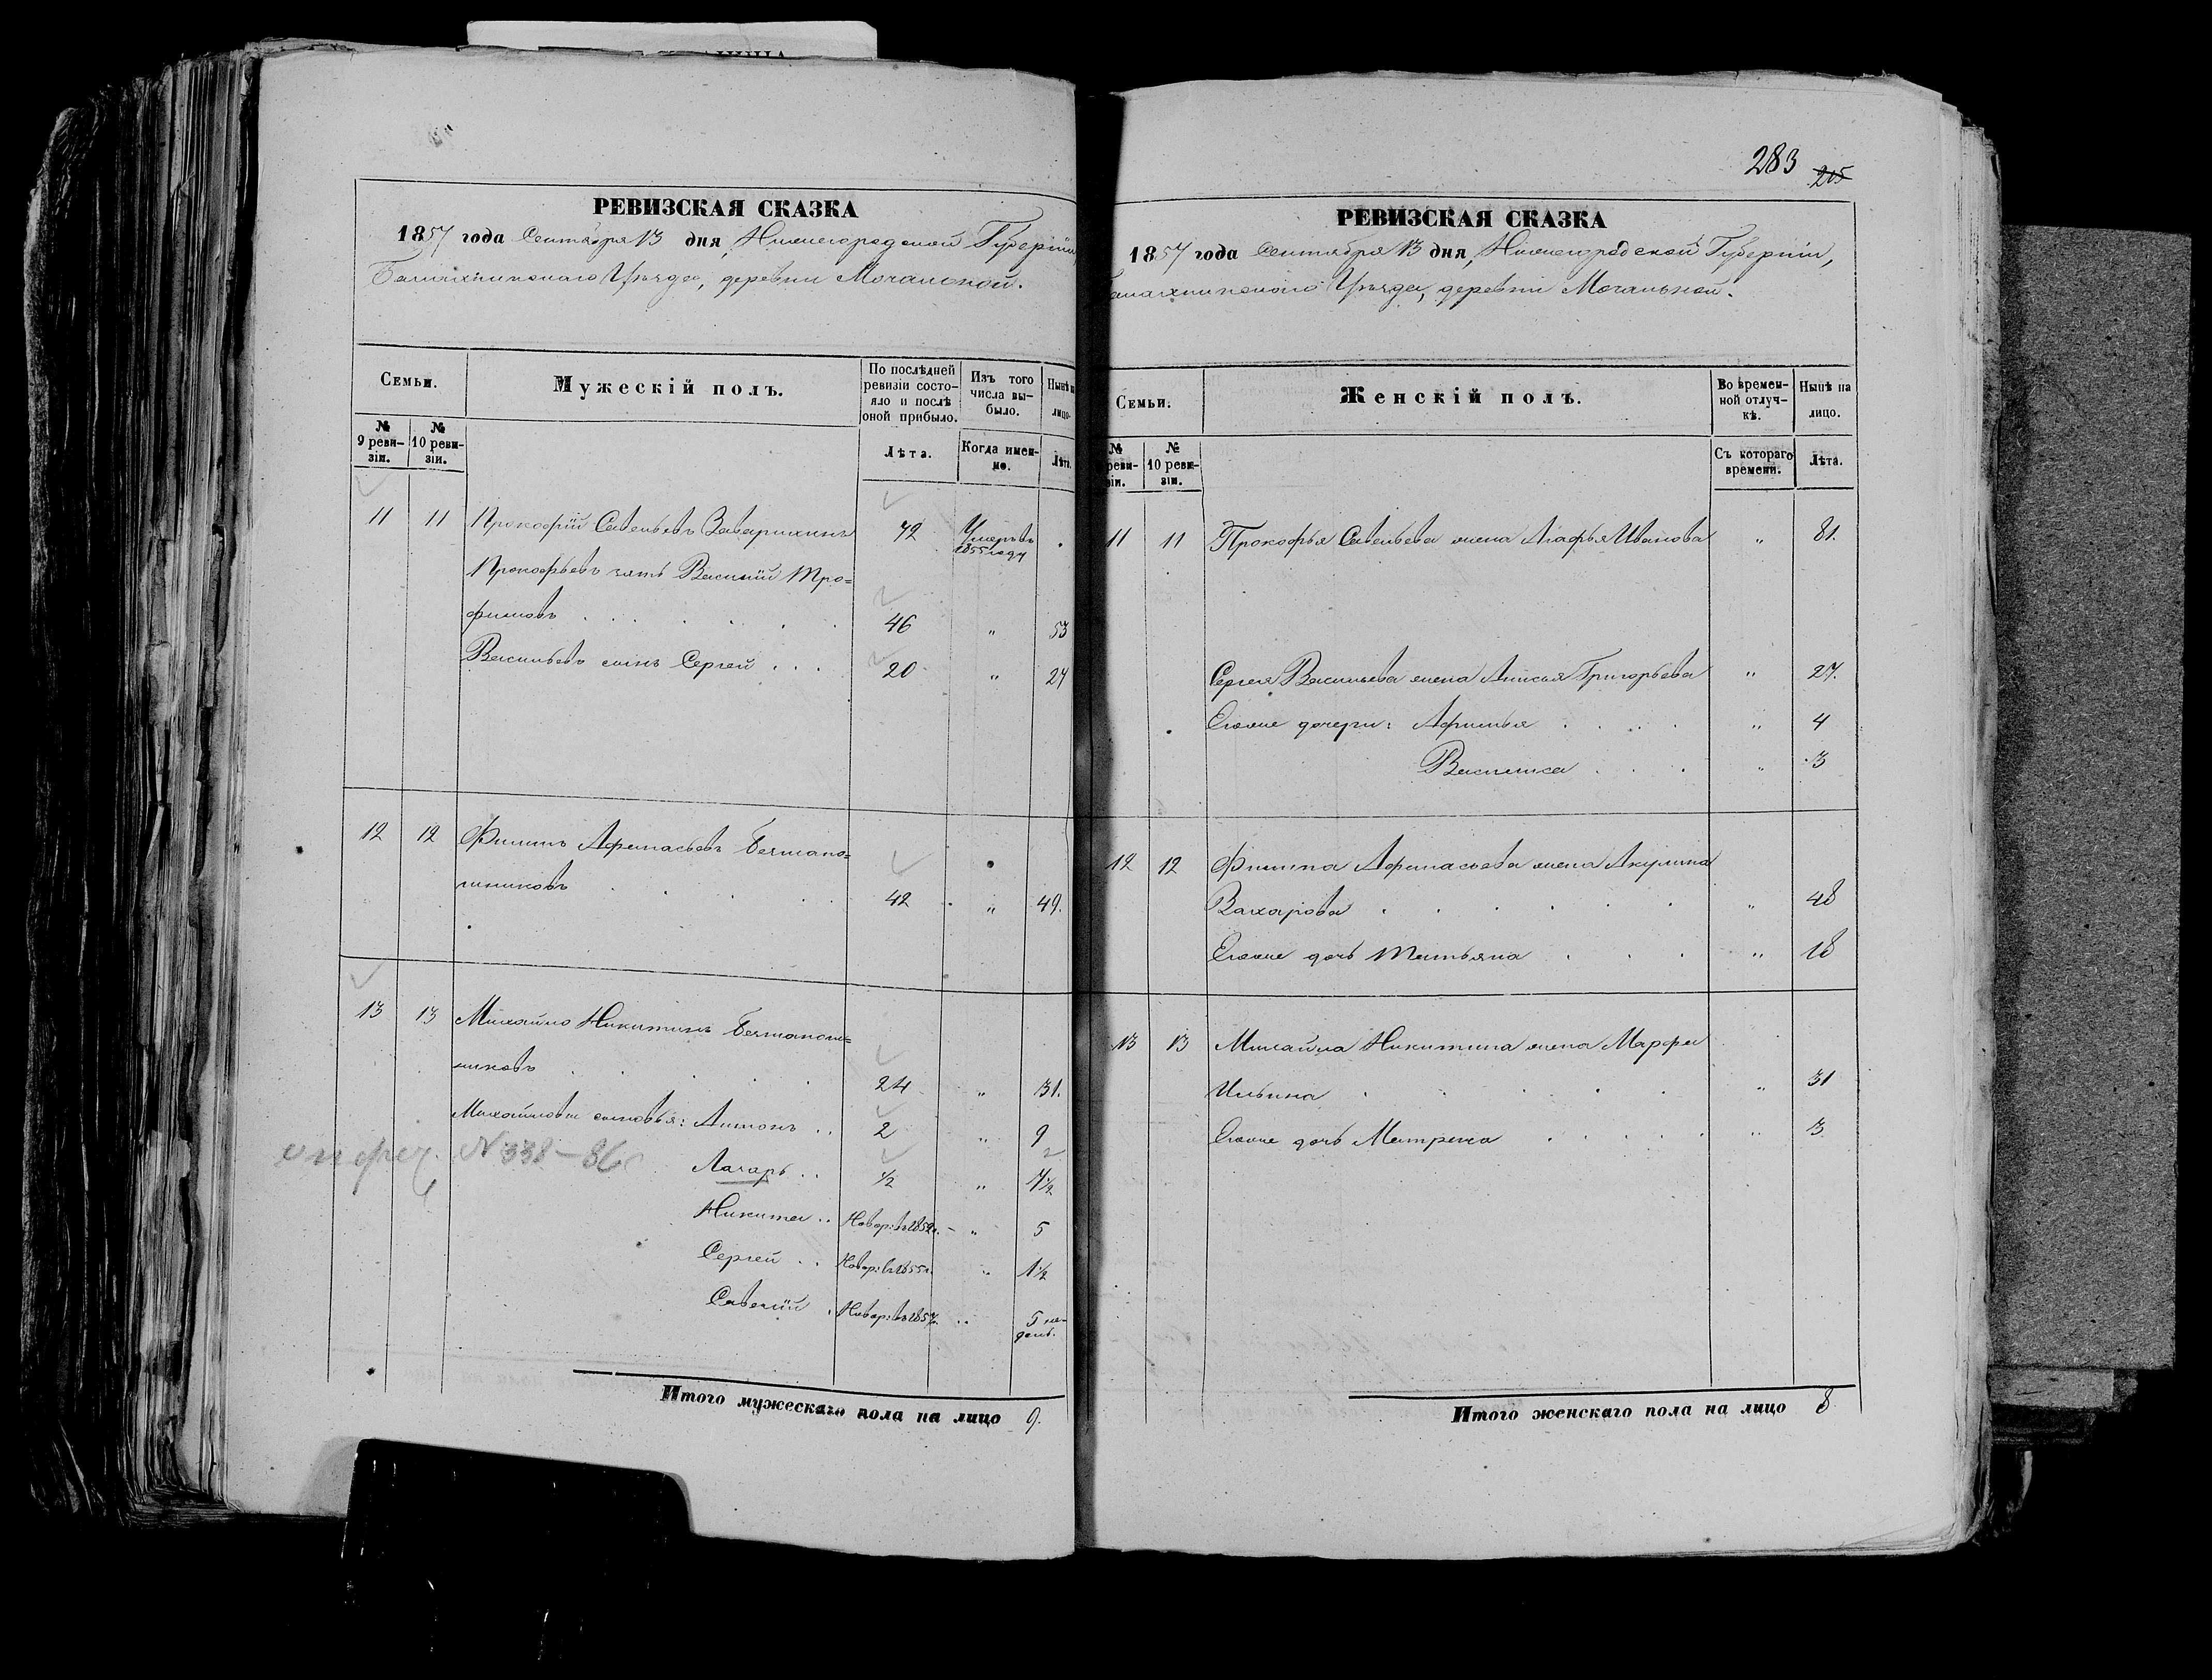 РЕВИЗСКАЯ СКАЗКА
1857 года Сентября 13 дня, Нижегородской Губерніи
Балахнинскаго Уѣзда, деревни Мочальной.
Семьи.
Мужескій полъ.
По послѣдней ревизіи состояло и послѣ оной прибыло.
Изъ того числа выбыло.
Нынѣ на лицо.
№ 9 ревизіи.
№ 10 ревизіи.
Лѣта.
Когда именно.
Лѣта.
11 11 Прокофій Савельевъ Заварихинъ 72 Умеръ въ 1855 году
Прокофьевъ зять Василій Тро=
фимовъ 46 " 53
Васильевъ сынъ Сергей 20 " 27
12 12 Филипъ Афанасьевъ
42 " 49.
13 13 Михайло Никитинъ
24 " 31.
Михайловы сыновья: Антонъ 2 " 9
N 338-86
Лазарь ½ " 7½
Никита Новор: въ 1852 г. " 5
Сергей Новор: въ 1855 г. " 1½
Савелій Новор: въ 1857 г. " 5 не-
дель.
Итого мужескаго пола на лицо 9.
283 215
РЕВИЗСКАЯ СКАЗКА
1857 года Сентября 13 дня, Нижегородской Губерніи,
Балахнинскаго Уѣзда, деревни Мочальной.
Семьи.
Женскій полъ.
Во временной отлучкѣ.
Нынѣ на лицо.
№ 9 ревизіи.
№ 10 ревизіи.
Съ котораго времени.
Лѣта.
11 11 Прокофья Савельева жена Агафья Иванова " 81.
Сергея Васильева жена Анисья Григорьева " 27.
Ихъ дочери: Афимья " 4
Василиса " 3
12 12 Филипа Афанасьева жена Акулина
Захарова " 48
дочь Татьяна " 18
13 13 Михайла Никитина жена Марфа
Ильина " 31
дочь Матрена " 3
Итого женскаго пола на лицо 8